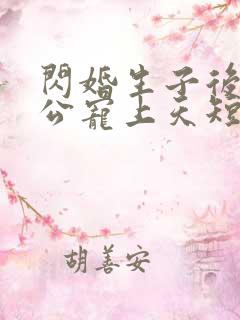 閃婚生子後
公寵上天短
胡善安